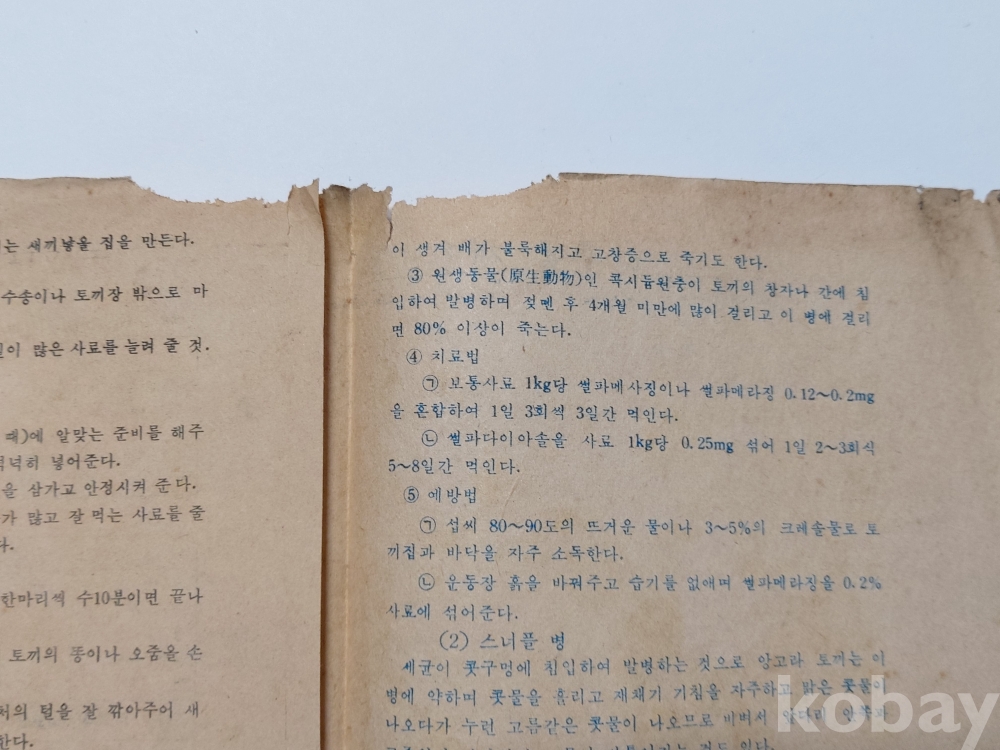 는 새끼낳을 집을 만든다.
수송이나 토끼장 밖으로 마
이 많은 사료를 늘려 줄 것.
때)에 알맞는 준비를 해주
넉넉히 넣어준다.
을 삼가고 안정시켜 준다.
가 많고 잘 먹는 사료를 줄
다.
한마리씩 수10분이면 끝나
토끼의 똥이나 오줌을 손
처의 털을 잘 깎아주어 새
한다.
이 생겨 배가 불룩해지고 고창증으로 죽기도 한다.
③ 원생동물(原生動物)인 콕시듐원충이 토끼의 창자나 간에 침
입하여 발병하며 젖뗀 후 4개월 미만에 많이 걸리고 이 병에 걸리
면 80% 이상이 죽는다.
④ 치료법
㉠ 보통사료 1kg당 썰파메사징이나 썰파메라징 0.12～0.2mg
을 혼합하여 1일 3회씩 3일간 먹인다.
㉡ 썰파다이아솔을 사료 1kg당 0.25mg 섞어 1일 2～3회식
5～8일간 먹인다.
⑤ 예방법
㉠ 섭씨 80～90도의 뜨거운 물이나 3～5%의 크레솔물로 토
끼집과 바닥을 자주 소독한다.
㉡ 운동장 흙을 바꿔주고 습기를 없애며 썰파메라징을 0.2%
사료에 섞어준다.
(2) 스너플 병
세균이 콧구멍에 침입하여 발병하는 것으로 앙고라 토끼는 이
병에 약하며 콧물을 흘리고 재채기 기침을 자주하고 맑은 콧물이
나오다가 누런 고름같은 콧물이 나오므로 비벼서 앞다리 안쪽과
kobay